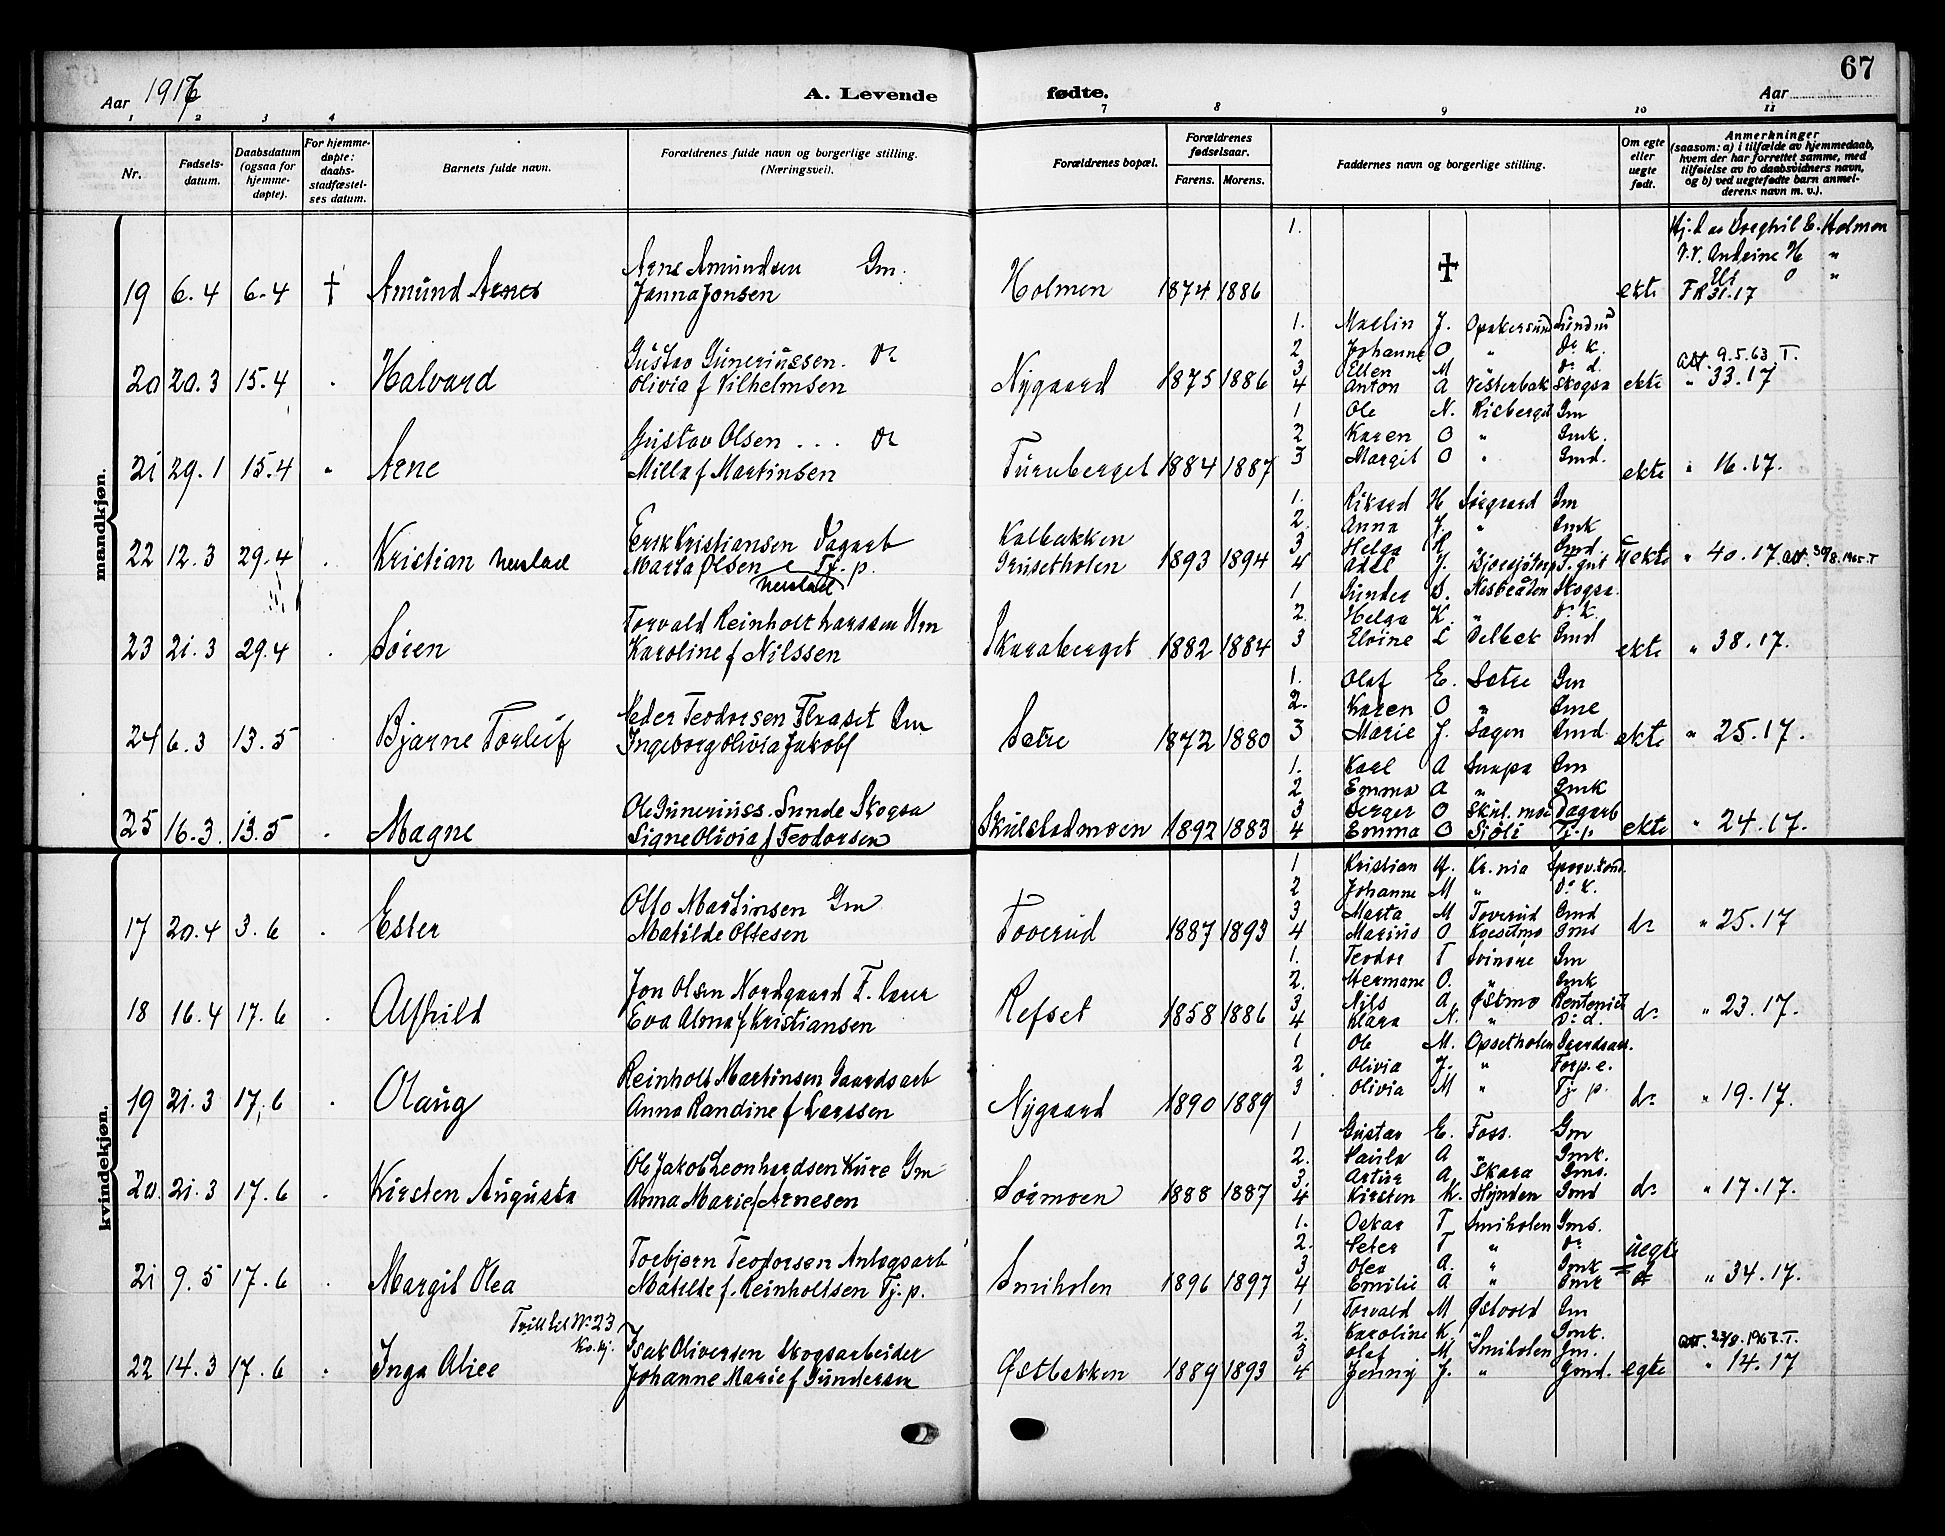 67
Aar 1917
A. Levende fødte.
Aar
1 2 3 4 7 8 9 10 11
Nr.
Fødsels-datum.
Daabsdatum (ogsaa for hjemme-døpte).
For hjemme-døpte: daabs-stadfæstel-ses datum.
Barnets fulde navn.
Forældrenes fulde navn og borgerlige stilling. (Næringsvei).
Forældrenes bopæl.
Forældrenes fødselsaar.
Farens. Morens.
Faddernes navn og borgerlige stilling.
Om egte eller uegte født.
Anmerkninger (saasom: a) i tilfælde av hjemmedaab, hvem der har forrettet samme, med tilføielse av to daabsvidners navn, og b) ved uegtefødte barn anmel-derens navn m. v.).
mandkjøn.
19 6.4 6.4 † Amund Arnes
Arne Amundsen Gm.
Janna Jonsen
Holmen 1874 1886
1.
†
ekte
E. Holmen
Andrine H "
31.17
20 20.3 15.4 Halvard
Gustav Guneriussen. Do
Olivia f Vilhelmsen
Nygaard 1875 1886
1. Martin J.
2 Johanne O " Do k.
3 Ellen M " Do d.
4 Anton A Vesterbak Skogsa
ekte
Att. 9.5.63 T.
" 33.17
21 29.1 15.4 " Arne
Gustav Olsen . . . Do
Milla f Martinsen
Furuberget 1884 1887
1 Ole N. Risberget Gm
2 Karen O " Gmk.
3 Margit O " Gmd.
ekte " 16.17.
22 12.3 29.4 Kristian Neslad
Erik Kristiansen Dagarb
Marta Olsen Tj. p.
Kalbakken
Grusetholen 1893 1894
1. Rikard H Sørgaard Gm
2. Anna J. " Gmk
3 Helga R " Gmd
4 Axel J. T. gut
uekte " 40.17. Att. 30/8.1965.T
23 21.3 29.4 Søren
Torvald Reinholt Larssen Gm
Karoline f Nilssen
Skaraberget 1882 1884
1 Gunder S. Skogsa.
2. Helga K. " Do k.
3 L Gmd
ekte " 38.17.
24 6.3 13.5 Bjarne Torleif
Peder Teodorsen Flraset Gm
Ingeborg Olivia Jakobf
Sætre 1872 1880
1. Olaf E. Sætre Gm
2. Karen O "
3 Marie J. Hagen Gmd.
ekte " 25.17.
25 16.3. 13.5 Magne
Ole Guneriuss. Sunde Skogsa
Signe Olivia f Teodorsen
Skulstadmoen 1892 1883
1. Karl A Gm
2 Emma A " Gmk
3 O Skul. moe Dagarb
4 Emma O Sjøli Tj.p
ekte " 24.17.
kvindekjøn.
17 20.4 3.6 Ester
Otto Martinsen Gm
Matilde Ottesen
Toverud 1887 1893
1 Kristian G. Kr.nia
2 Johanne M " Do K.
3 Marta M Toverud Gmd
4 Marius O Gms
do " 25.17
18 16.4 17.6 Alfhild
Jon Olsen Nordgaard
Eva Alma f Kristiansen
Refset 1858 1886
1. Teodor T Gm
2. Hermane O. " Gmk
3 Nils A. Østmo
4 Klara N. " Do d.
do " 23.17.
19 21.3 17.6 Olaug
Reinholt Martinsen Gaardsarb
Anna Randine f Larssen
Nygaard 1890 1889
1 Ole M. Opsetholen Gaardsar.
2 Olivia J. "
3 Olivia M " Tj. p.
do " 19.17.
20. 21.3 17.6 Kirsten Augusta
Ole Jakob Leonhardsen Kure Gm
Anna Marie f Arnesen
Sørmoen 1888 1887
1 Gustav E. Foss. Gm
2. Paula A " Gmk.
3. Artur A. Skara Gms.
4 Kirsten K. Hynden Gmd
do " 17.17.
21 9.5 17.6 Margit Olea
Torbjørn Teodorsen Anlægsarb
Matilde f. Reinholtsen Tj. p.
Smiholen 1896 1897
1. Oskar T Smiholen Gms.
2. Peter T " Do
3 Olea A. " Gmk
4 Emilie A "
uegte
" 34.17.
Tvilling No 23
Kv.kj.
22 14.3 17.6 Inga Alice
Isak Oliversen Skogsarbeider
Johanne Marie f Gundersen
Østbakken 1889 1893
1 Torvald M Østvold Gm
2. Karoline K. " Gmk.
3 Olaf M. Smiholen Gm.
4 Jenny J. " Gmd.
egte
Att. 23/8.1967.T.
" 14.17